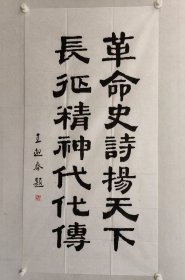 革命史詩揚天下
長征精神代代傳
王迎春題